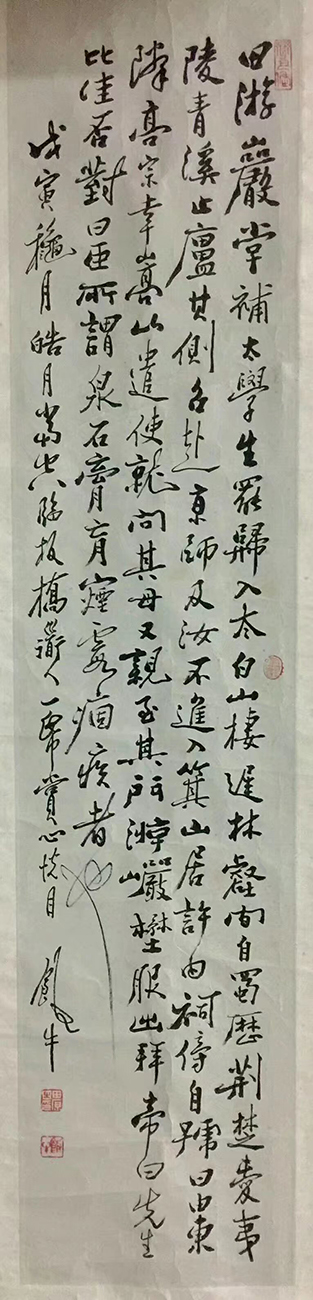 田游巖嘗補太學生罷歸入太白山棲遲林壑間自蜀歷荊楚愛夷
陵青溪止廬其側召赴京師及汝不進入箕山居許由祠傍自號曰由東
隣高宗幸嵩山遣使就問其母又親至其所游巖野服出拜帝曰先生
比佳否對曰臣所謂泉石膏肓煙霞痼疾者也
戊寅龝月皓月當空臨板橋道人一帋賞心悅目